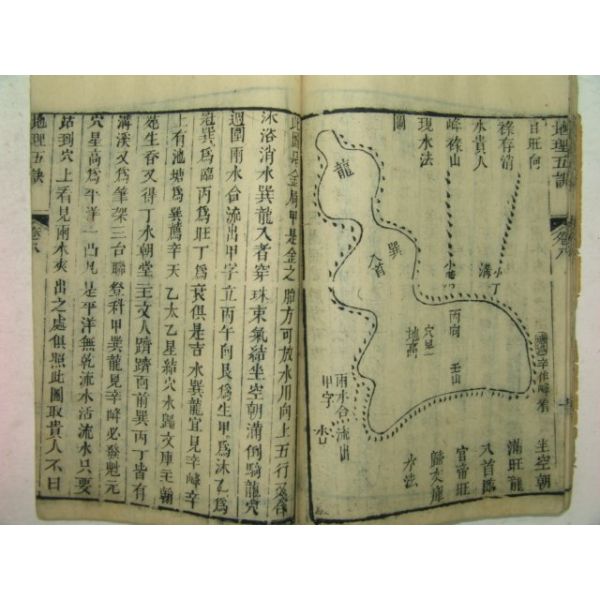 地理五訣
自旺向
祿存消
水貴人
峰祿山
現水法
圖
龍
入首
巽
小
溝
丙向
壬山
穴星
地高
兩水合流出
甲字
水口
坐空朝
滿旺龍
入首臨
官帝旺
歸交庫
水法
胎方可放水用向上五行又合
沐浴消水巽龍入者穿珠束氣結坐空朝溝倒騎龍穴
週圍兩水合流出甲字立丙午向艮爲生甲爲沐乙爲
冠巽爲臨丙爲旺丁爲衰俱是吉水巽龍宜見辛峰辛
上有池塘爲巽薦辛天乙太乙星結穴水歸文庫主翰
苑生香又得丁水朝堂主文人躋躋面前巽丙丁皆有
溝溪又爲筆架三台聯登科甲巽龍見辛峰必發魁元
穴星高爲平洋一凸凡是平洋無乾流水活流水只要
站到穴上看見兩水夾出之處俱照此圖取貴人不曰
地理五訣